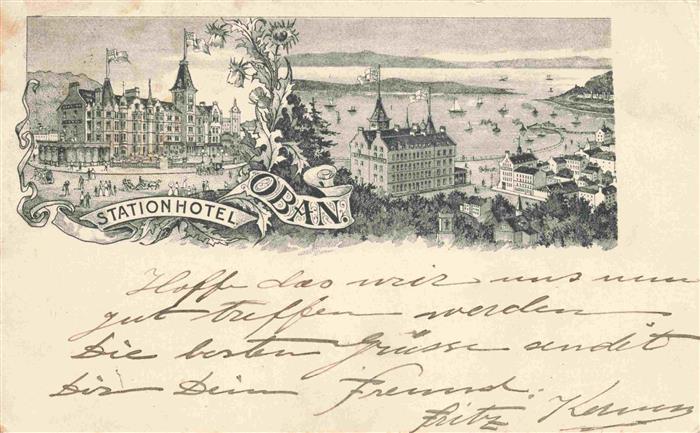 STATION HOTEL
OBAN.
Hoffe das wir uns nun
gut treffen werden
Die besten Grüsse sendet
Dir Dein Freund.
Fritz